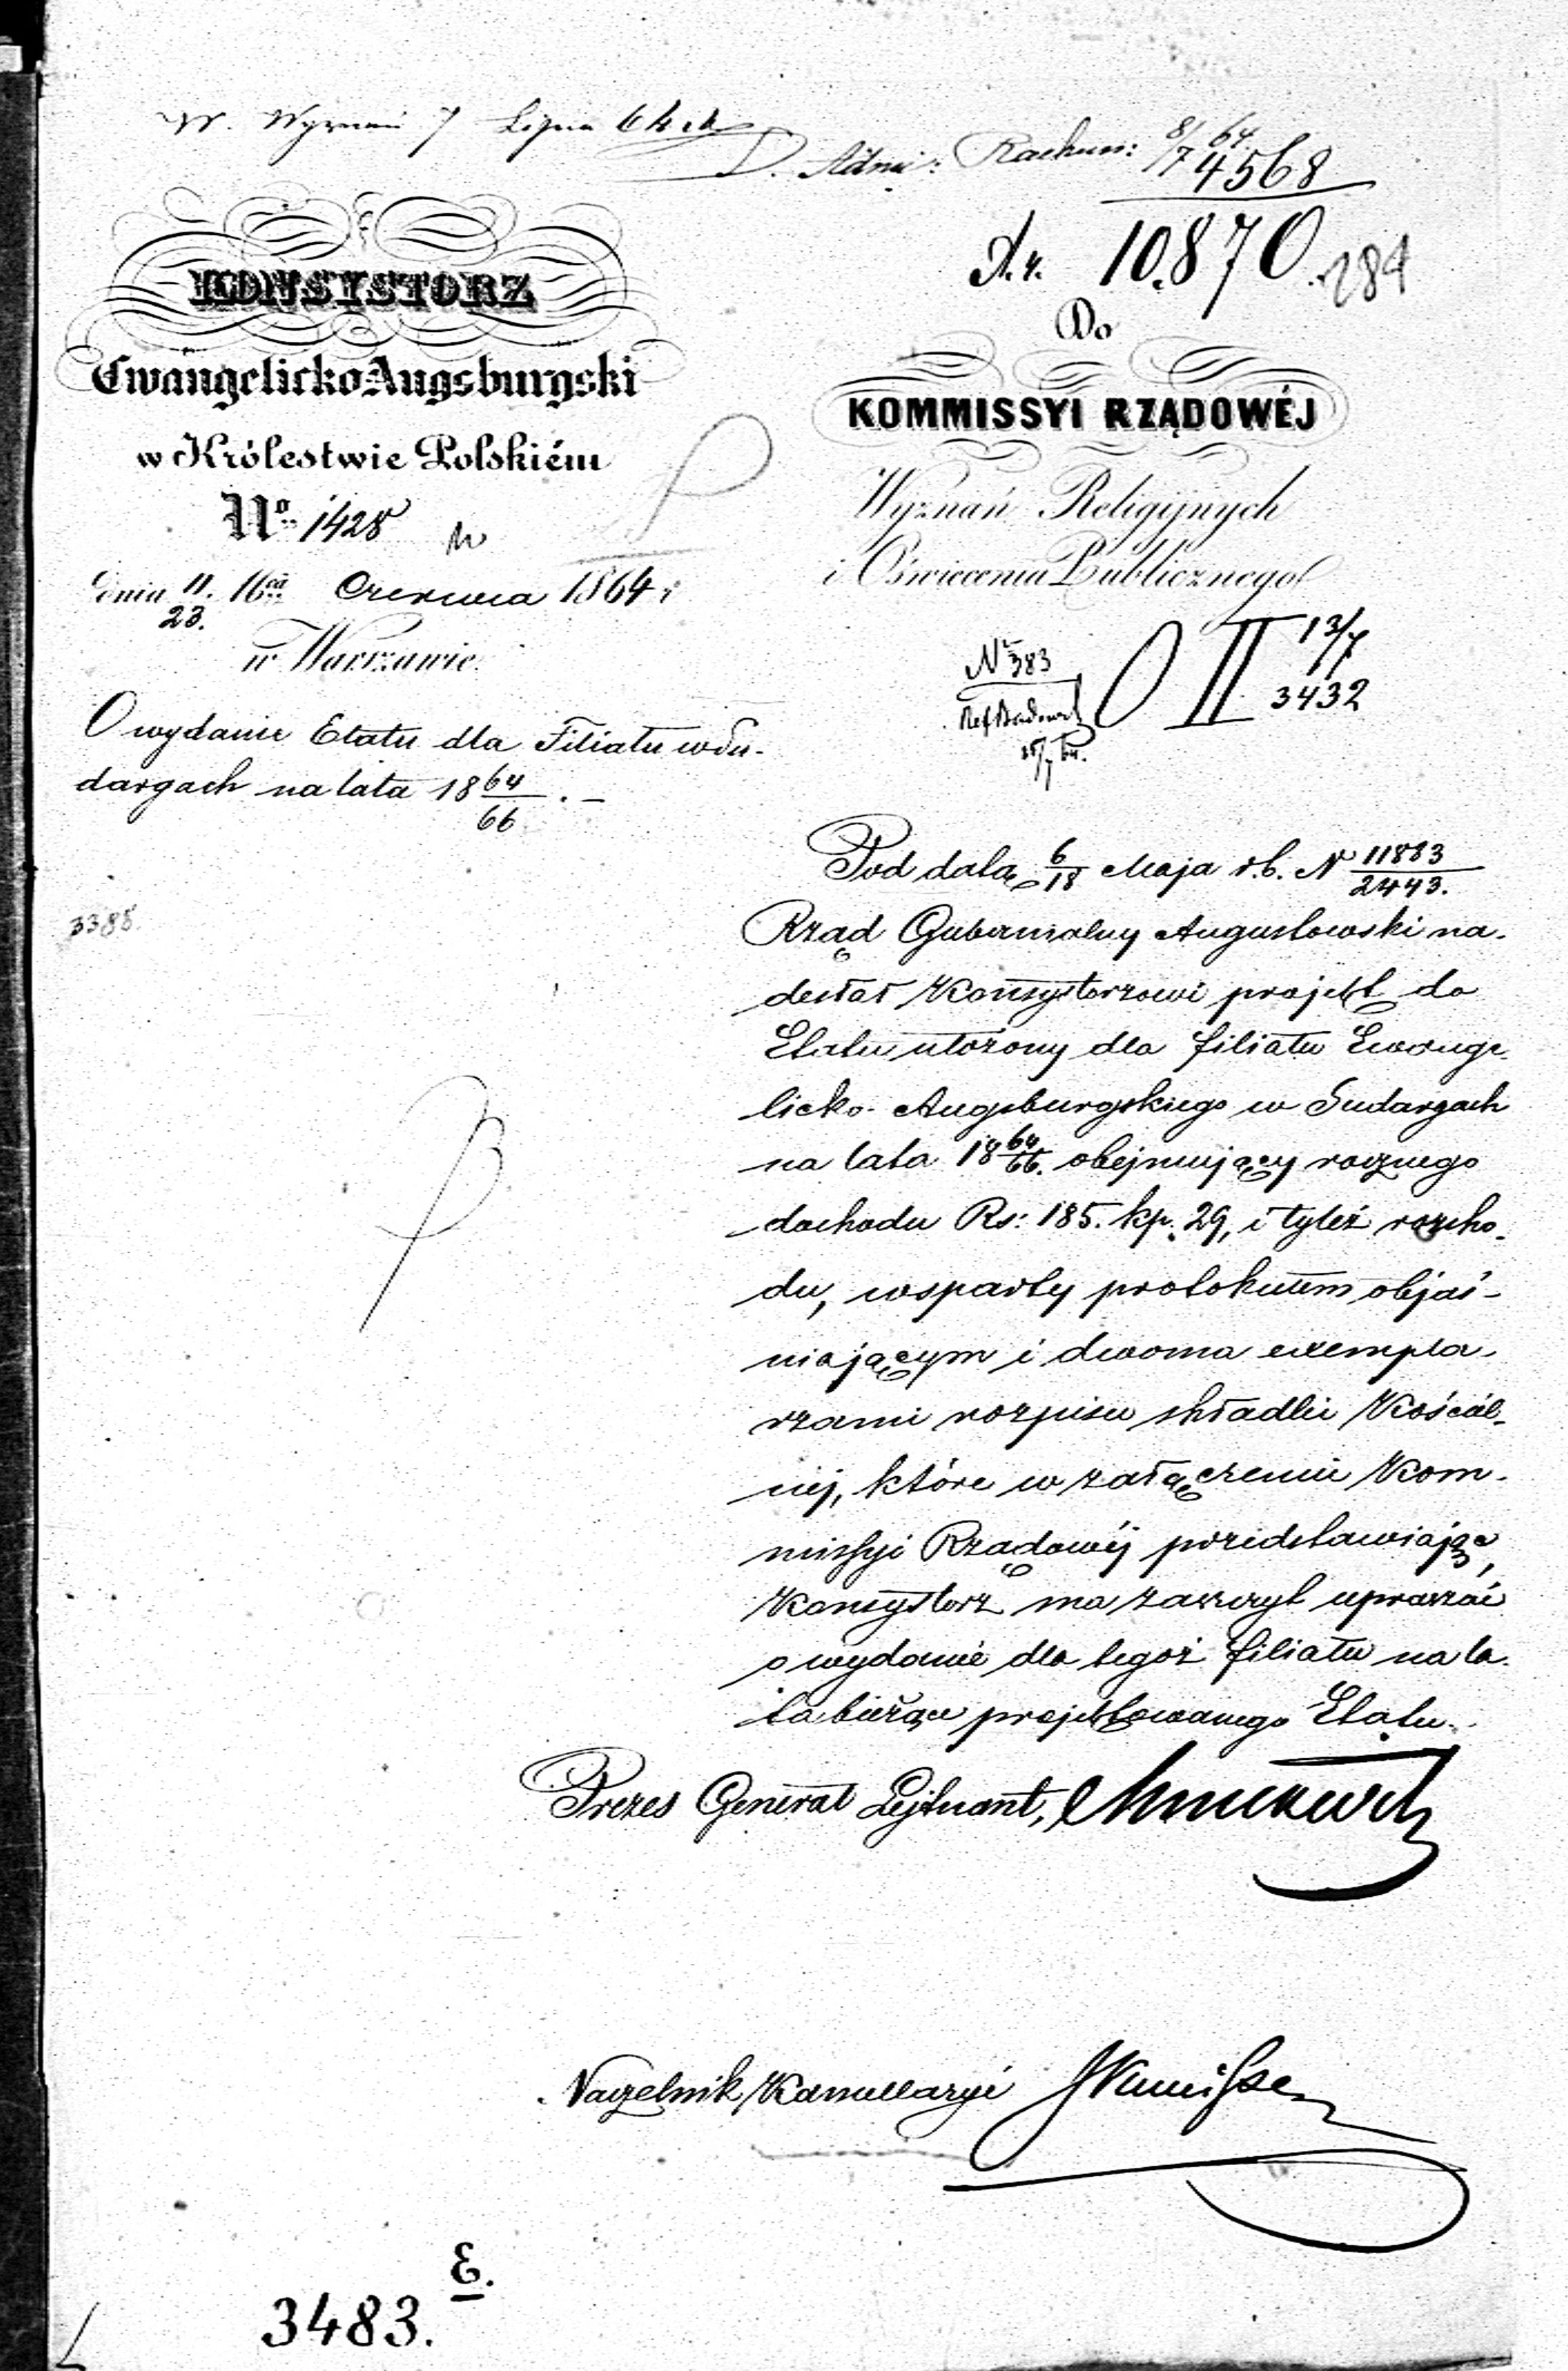 W. Wyznań 7 Lipca 64
D. Admi: Rachun: 8/7 64
4568
10.870. 284
KONSYSTORZ
Ewangelicko-Augsburgski
w Królestwie Polskiém
No 1428
dnia 11/23. Czerwca 1864 r
w Warszawie.
O wydanie Etatu dla Filiału w Su-
dargach na lata 18 64/66. —
3385.
Do
KOMMISSYI RZĄDOWÉJ
Wyznań Religijnych
i Oświecenia Publicznego
Nr 383
O II 13/7
3432
15/7 64.
Pod datą 6/18 Maja r.b. N 11883/2443.
Rząd Gubernialny Augustowski na-
desłał Konsystorzowi projekt do
Etatu ułożony dla filiału Ewange-
licko-Augsburgskiego w Sudargach
na lata 18 64/66. obejmujący rocznego
dochodu Rs: 185. kp. 29, i tyleż rozcho-
du, wsparty protokułem objaś-
niającym i dwoma exempla-
rzami rozpisu składki Kościél-
néj, które w załączeniu Kom-
missyi Rządowéj przedstawiając,
Konsystorz ma zaszczyt upraszać
o wydanie dla tegoż filiału na la-
ta bieżące projektowanego Etatu.
Prezes Generał Lejtnant,
Naczelnik Kancellaryi
E.
3483.